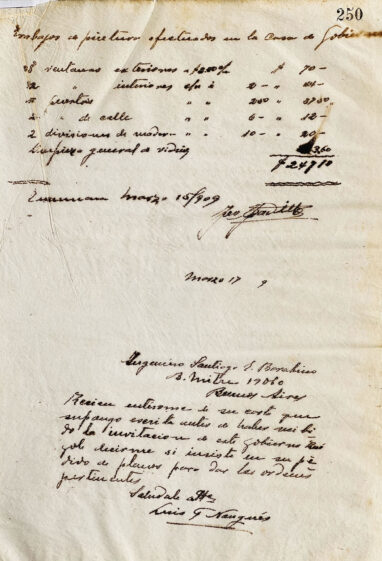 250
Trabajos de pintura efectuados en la Casa de Gobierno
ventanas exteriores a $ 70-
" interiores c/u á 2-"
puertas " " 2
2 " de calle " " 6-" 12-
2 divisiones de madera- " 10-" 20-
Limpieza general de vidrios
$ 247
Tucumana Marzo 15/909
Marzo 17 9
Ingeniero Santiago E. Barabino
B. Mitre 1960
Buenos Aires
Recien enterome de su carta que
supongo escrita antes de haber recibi
do la invitacion de este gobierno. Rué
gole decirme si insiste en su pe
dido de planos para dar las ordenes
pertinentes
Salúdale atte
Luis F Nougués